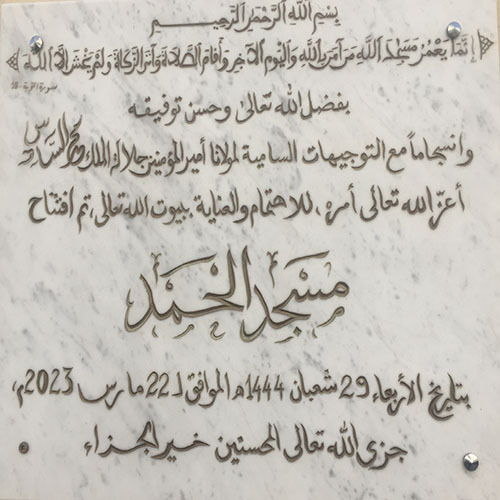 بسم الله الرحمن الرحيم
إنما يعمر مسجد الله من آمن بالله واليوم الآخر وأقام الصلاة وآتى الزكاة ولم يخش إلا الله
سورة التوبة -18
بفضل الله تعالى وحسن توفيقه
وانسجاماً مع التوجيهات السامية لمولانا أمير المؤمنين جلالة الملك محمد السادس
أعز الله تعالى أمره، للاهتمام والعناية ببيوت الله تعالى، تم افتتاح
مسجد الحمد
بتاريخ الأربعاء 29 شعبان 1444ه الموافق لـ 22 مارس 2023م،
جزى الله تعالى المحسنين خير الجزاء